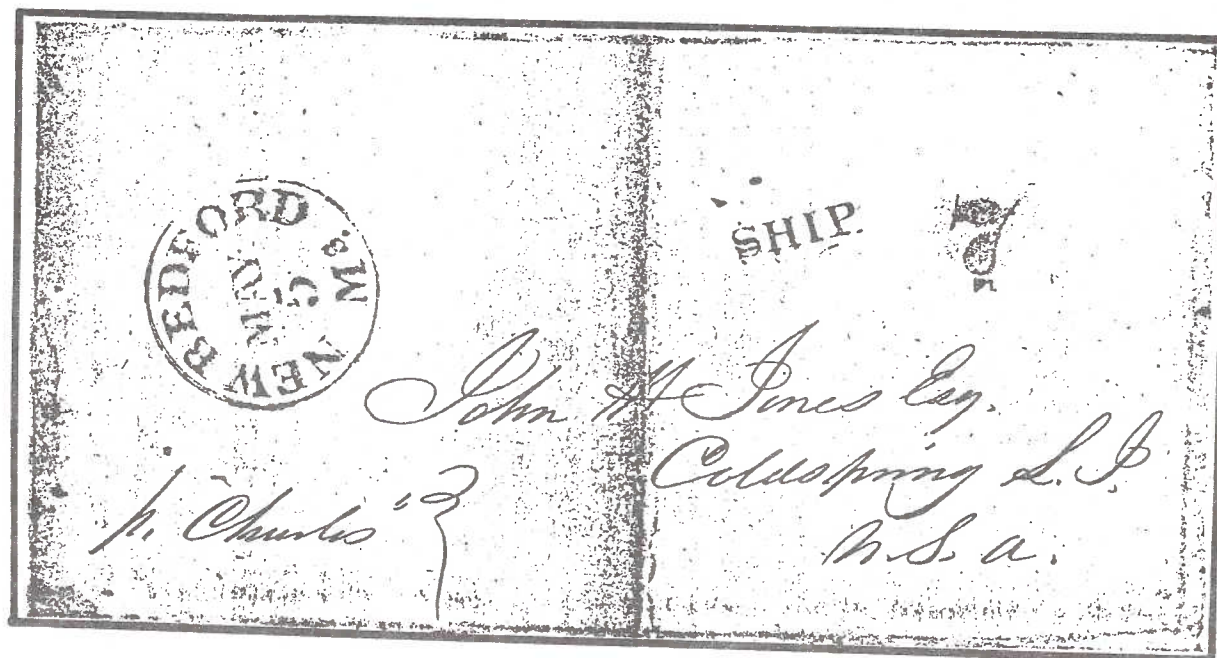 NEW BEDFORD Ms.
MAY
5
SHIP
7
John H Jones Esq.
Coldspring L. I.
U. S. A.
p. "Charles"